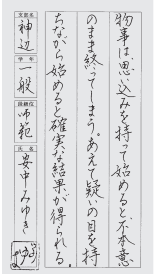 物事は、思い込みを持って始めると不本意
のまま終ってしまう。あえて疑いの目を持
ちながら始めると確実な結果が得られる。
支部名 神辺
学年 一般
段級位 師範
氏名 安中みゆき